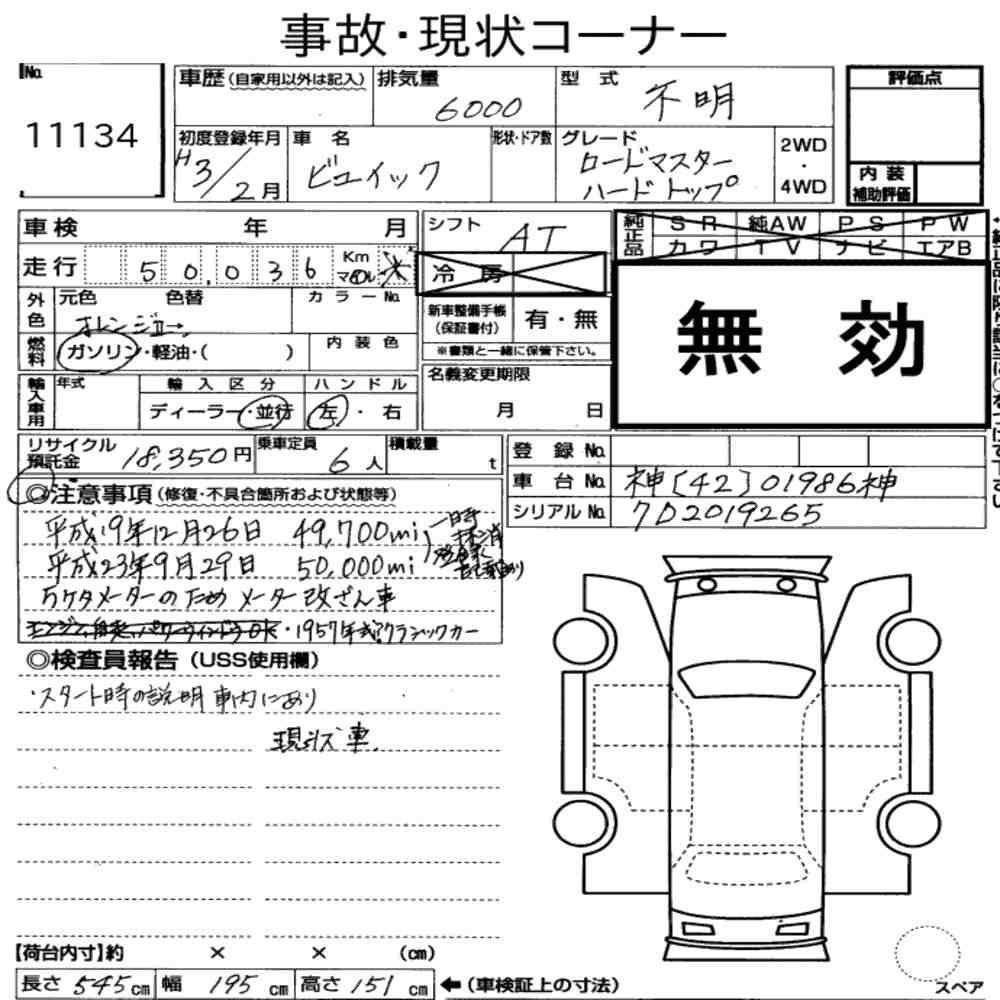 事故・現状コーナー
No. 11134
車歴(自家用以外は記入) 排気量 6000 型式 不明 評価点
初度登録年月 H3/2月 車名 ビュイック 形状・ドア数 グレード ロードマスター ハードトップ 2WD・4WD
内装補助評価
車検 年 月 シフト AT 純正品 SR 純AW PS PW
カワ TV ナビ エアB
走行 50,036 Km マイル * 冷房
外色 元色 色替 カラーNo. 新車整備手帳(保証書付) 有・無 無効
オレンジ
燃料 ガソリン・軽油・( ) 内装色 ※書類と一緒に保管下さい。
輸入車用 年式 輸入区分 ハンドル 名義変更期限
ディーラー・並行 左・右 月 日
リサイクル預託金 18,350円 乗車定員 6人 積載量 t 登録No.
車台No. 神[42]01986神
シリアルNo. 7D2019265
◎注意事項(修復・不具合箇所および状態等)
平成19年12月26日 49,700mi 一時抹消
平成23年9月29日 50,000mi 登録
5ケタメーターのためメーター改ざん車
・1957年式クラシックカー
◎検査員報告(USS使用欄)
・スタート時の説明車内にあり
現状車.
【荷台内寸】約 × × (cm)
長さ 545cm 幅 195cm 高さ 151cm ←(車検証上の寸法)
スペア